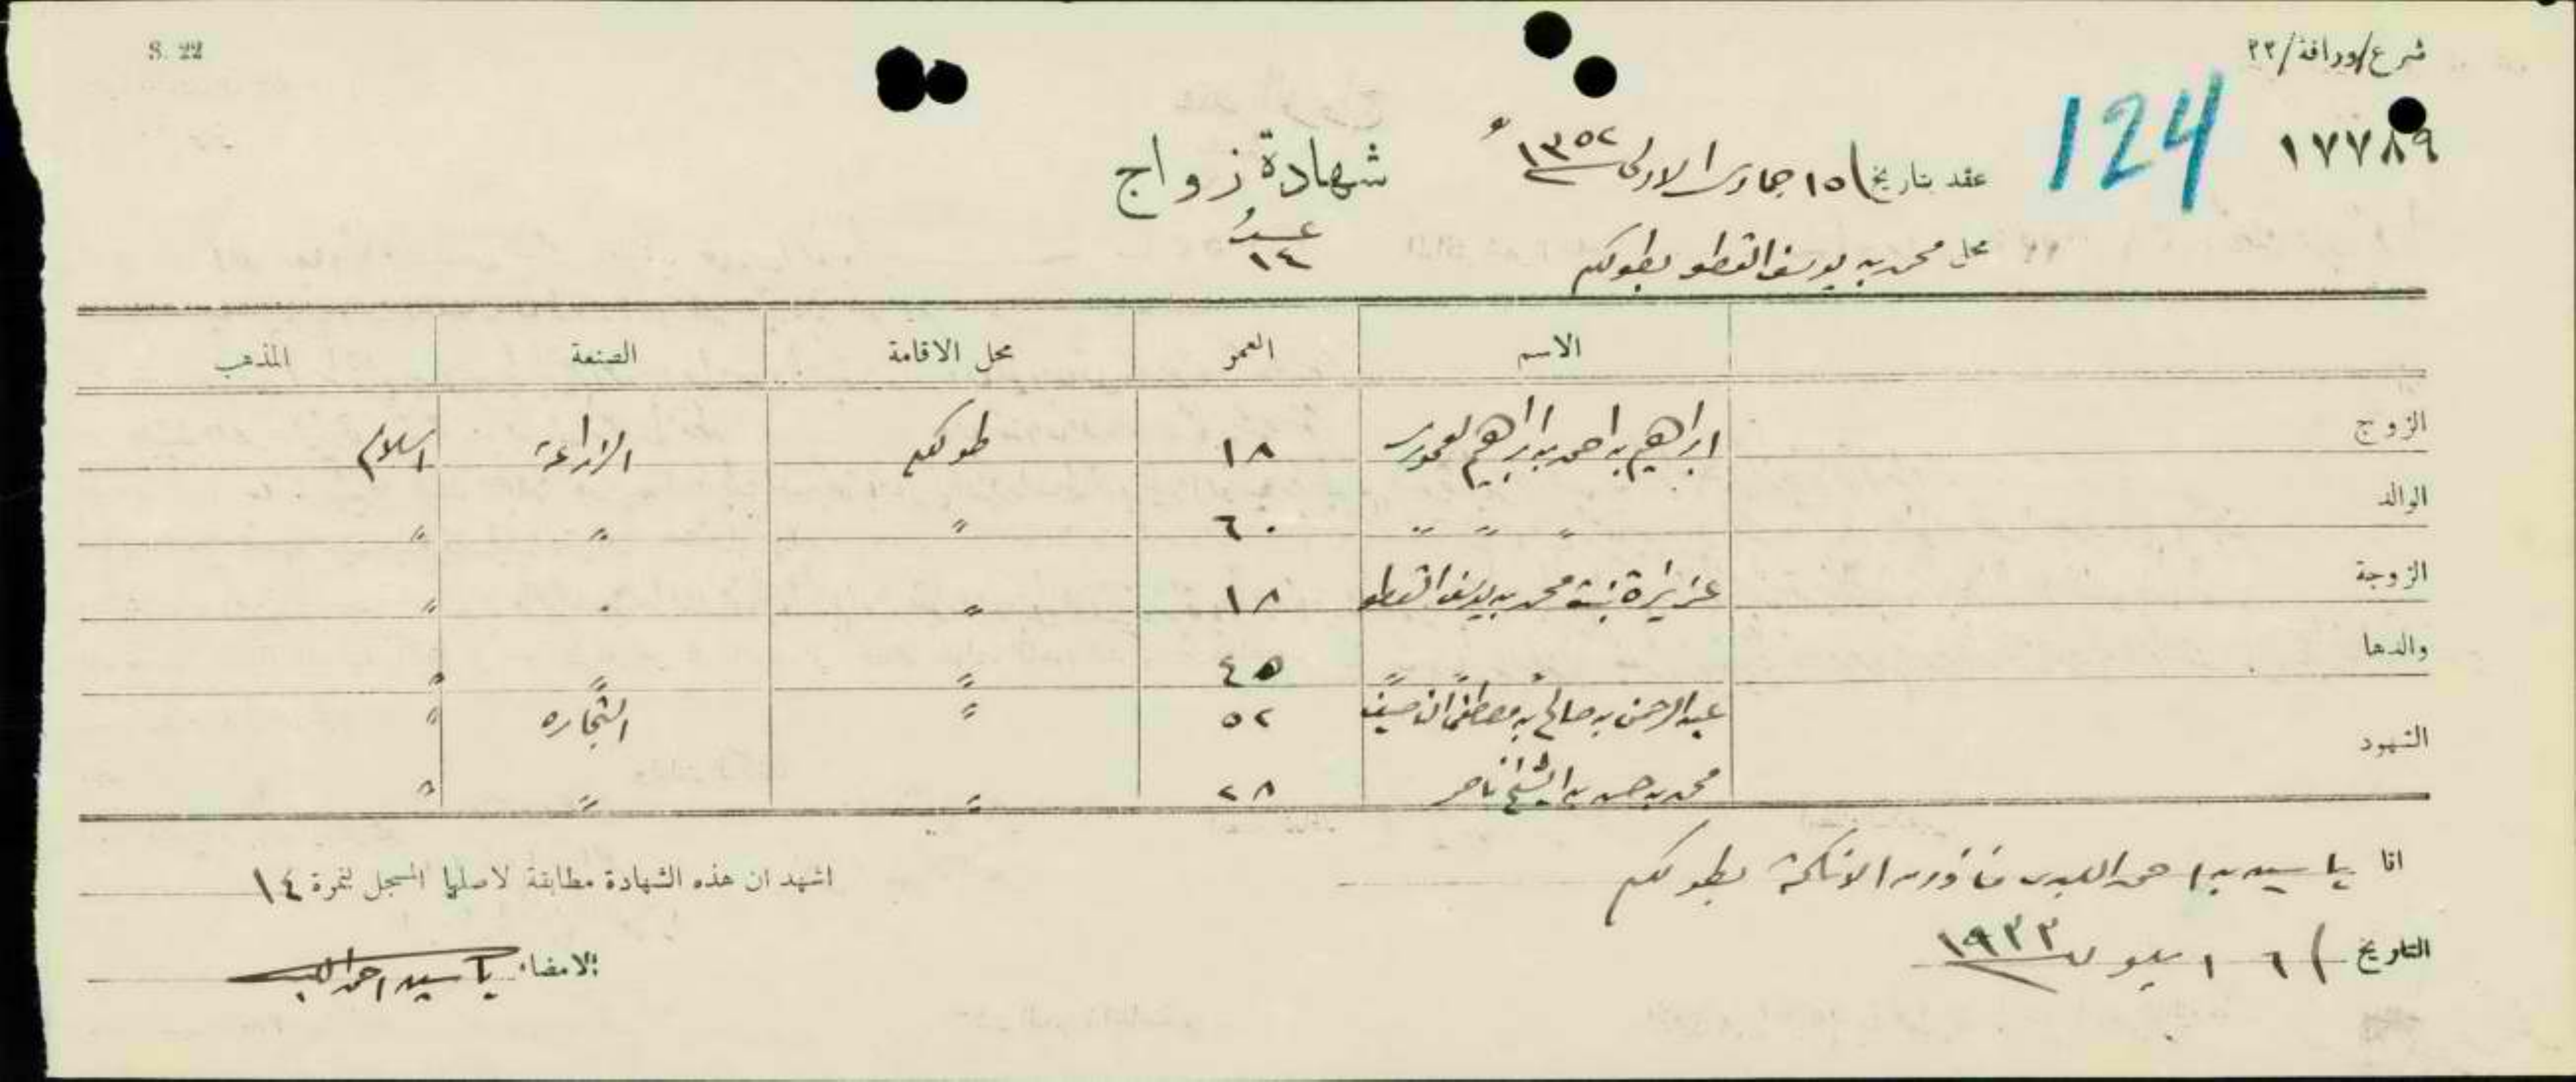 شرع/وراقة/٢٢
S. 22
١٧٧٨٩
124
عقد بتاريخ ١٥ جمادى الاولى ١٣٥٢
شهادة زواج
عدد
١٤
محل محمد بن يوسف القطو بطولكرم
الاسم العمر محل الاقامة الصنعة المذهب
الزوج ابراهيم بن احمد بن ابراهيم ١٨ طولكرم الزراعة اسلام
الوالد " " " ٦٠ " " "
الزوجة عزيزة بنت محمد بن يوسف القطو ١٨ " . "
والدها " " " ٤٥ " " "
الشهود عبد الرحمن بن صالح بن مصطفى ٥٢ " التجاره "
محمد بن حسن بن الشيخ ناصر ٢٨ " " "
انا ياسين بن احمد مأذون الانكحة بطولكرم
اشهد ان هذه الشهادة مطابقة لاصلها المسجل لنمرة ١٤
التاريخ ٦ ايلول ١٩٣٣
الامضاء ياسين احمد